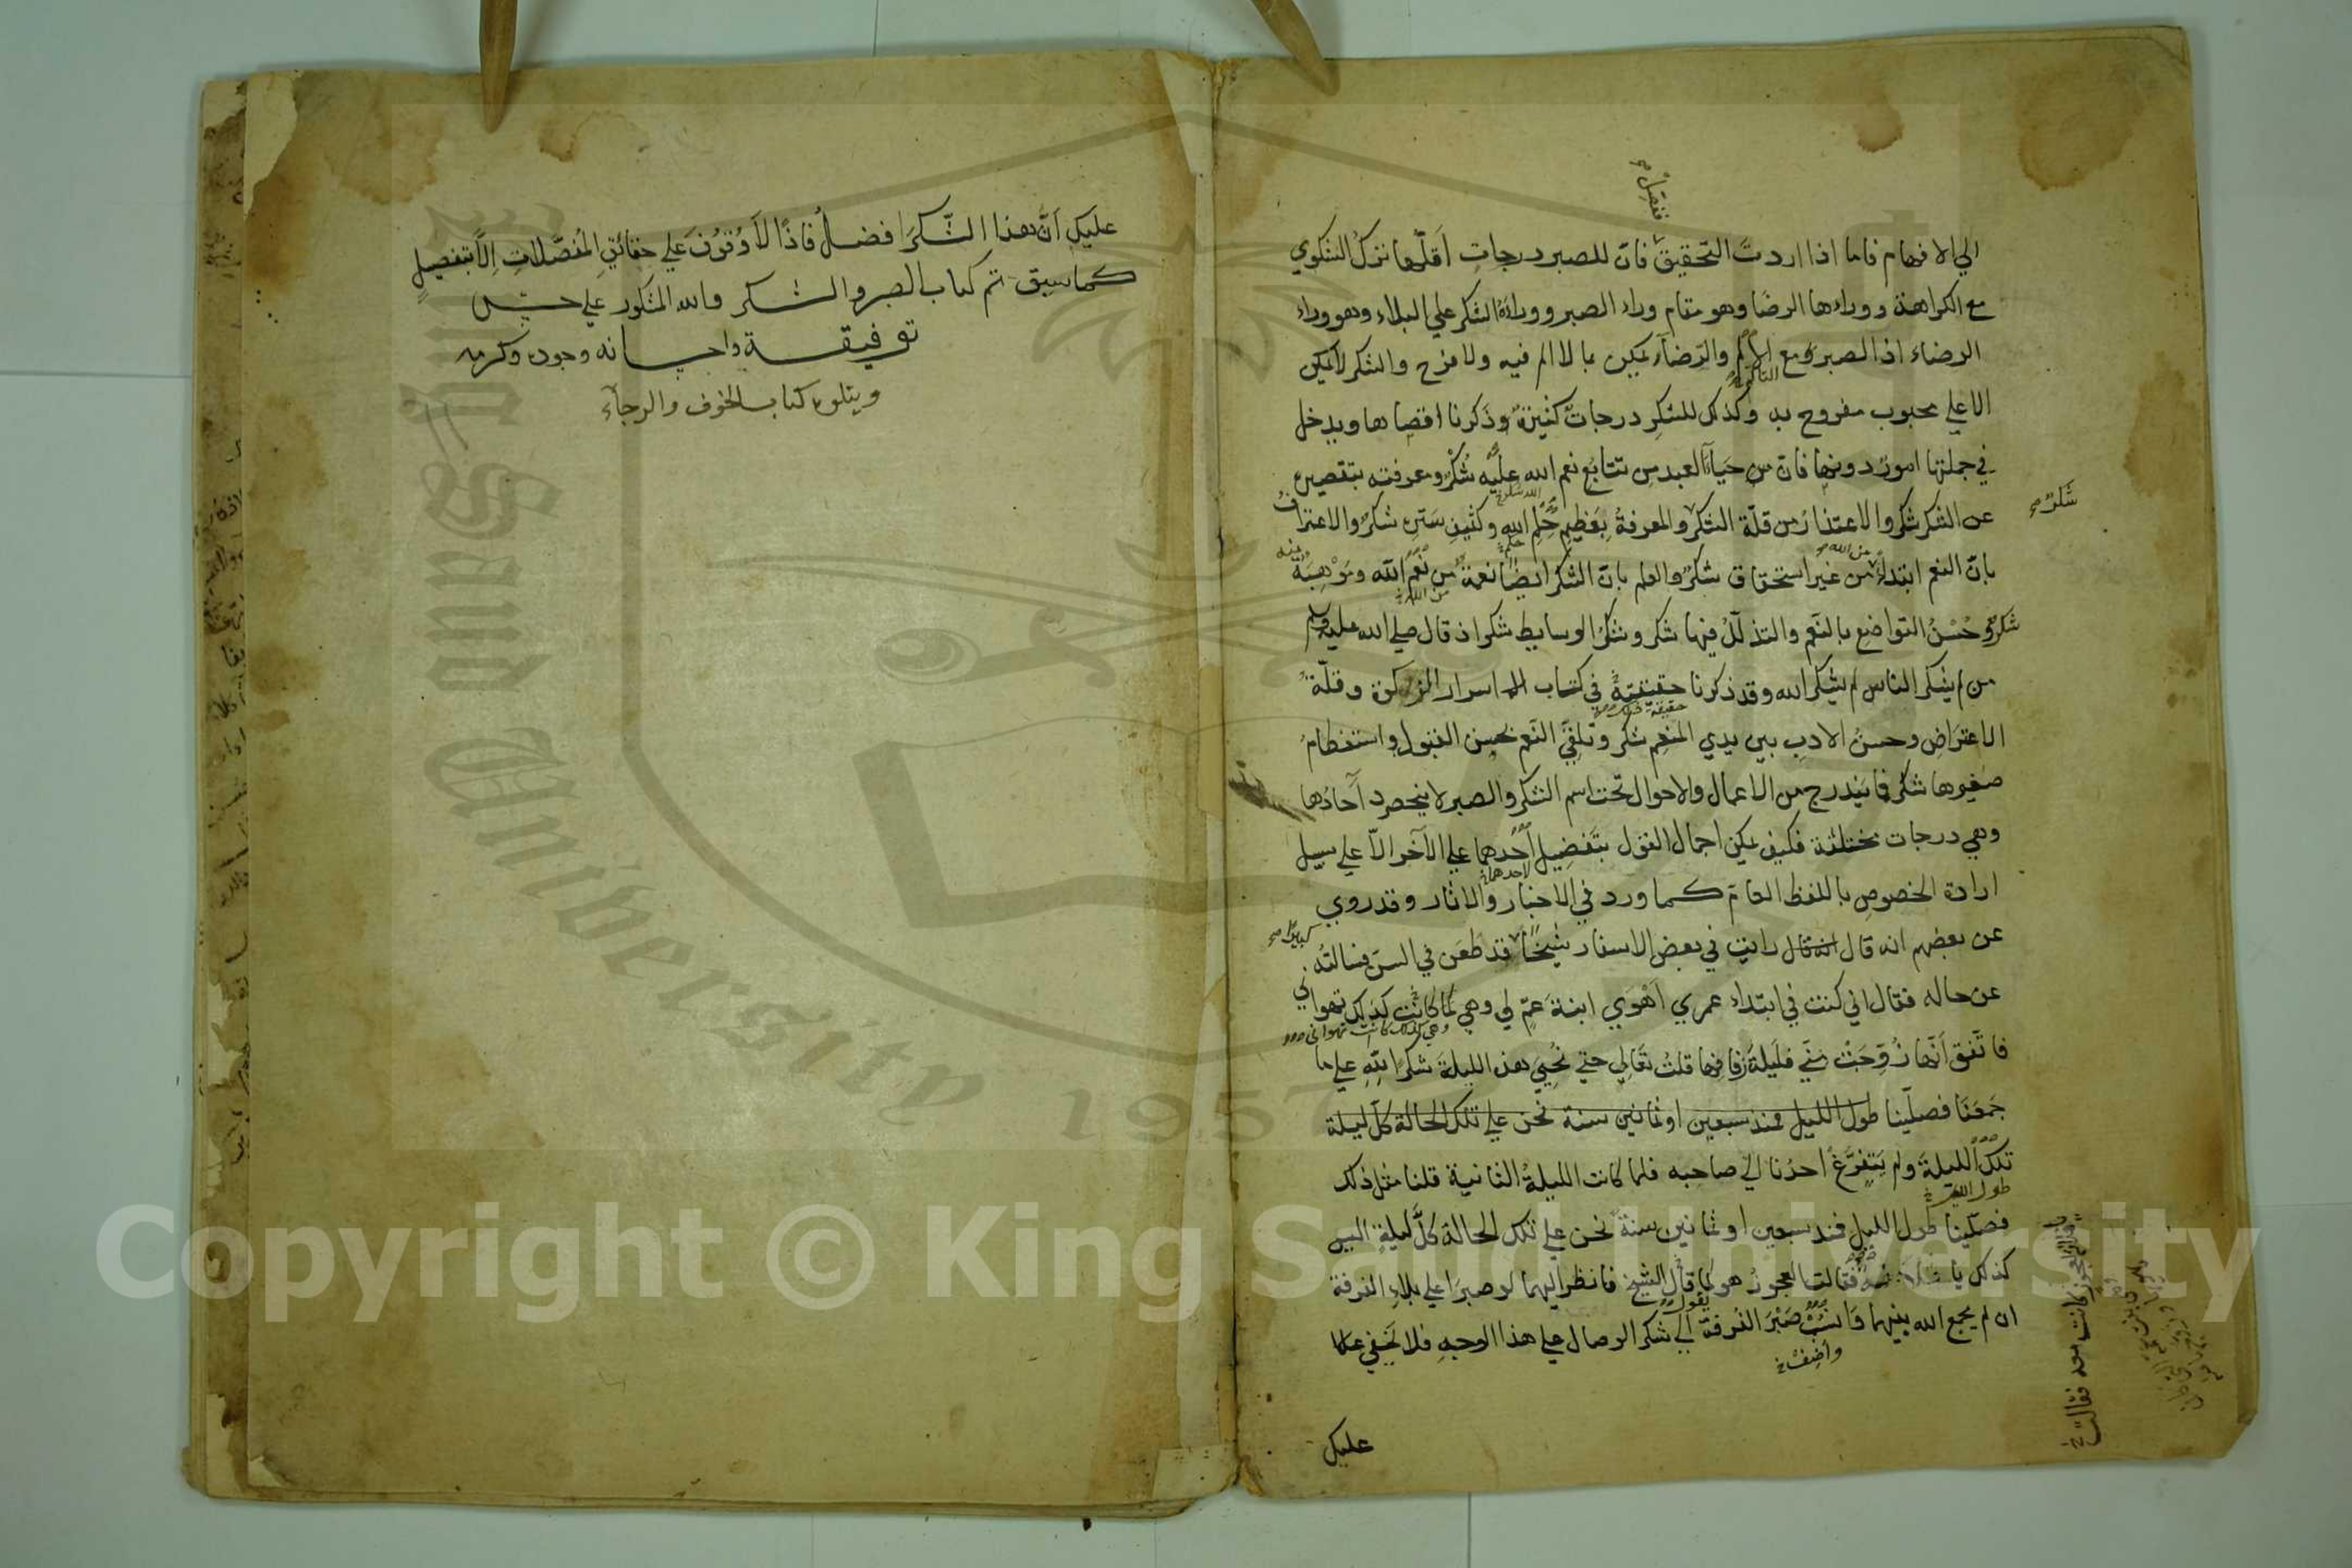 الي الافهام فاما اذا اردت التحقيق فان للصبر درجات اقلها ترك الشكوي
مع الكراهة ووراءها الرضا وهو مقام وراء الصبر ووراءه الشكر علي البلاء وهو وراء
الرضاء اذ الصبر مع الالم والرضاء يمكن بما لا الم فيه ولا فرح والشكر لا يمكن
الا علي محبوب مفروح به وكذلك للشكر درجات كثيرة وذكرنا اقصاها ويدخل
في جملتها امور دونها فان من حياء العبد من تتابع نعم الله عليه شكر ومعرفته بتقصيره
عن الشكر شكر والاعتذار من قلة الشكر والمعرفة بعظيم حلم الله وكثيف ستره شكر والاعتراف
بان النعم ابتداء من غير استحقاق شكر والعلم بان الشكر ايضا نعمة من نعم الله وموهبة منه
شكر وحسن التواضع بالنعم والتذلل فيها شكر وشكر الوسايط شكر اذ قال صلي الله عليه وسلم
من لم يشكر الناس لم يشكر الله وقد ذكرنا حقيقته في كتاب اسرار الزكوة وقلة
الاعتراض وحسن الادب بين يدي المنعم شكر وتلقي النعم بحسن القبول واستعظام
صغيرها شكر فما يندرج من الاعمال والاحوال تحت اسم الشكر والصبر لا ينحصر آحادها
وهي درجات مختلفة فكيف يمكن اجمال القول بتفضيل احدهما علي الآخر الا علي سبيل
ارادة الخصوص باللفظ العام كما ورد في الاخبار والاثار وقد روي
عن بعضهم انه قال رايت في بعض الاسفار شيخا قد طعن في السن فسالته
عن حاله فقال اني كنت في ابتداء عمري اهوي ابنة عم لي وهي كما كانت كذلك تهواني
فاتفق انها زوجت مني فليلة زفافها قلت تعالي حتي نحيي هذه الليلة شكرا لله علي ما
جمعنا فصلينا طول الليل فمنذ سبعين او ثمانين سنة نحن علي تلك الحالة كل ليلة
تلك الليلة ولم يتفرغ احدنا الي صاحبه فلما كانت الليلة الثانية قلنا مثل ذلك
فصلينا طول الليل فمنذ سبعين او ثمانين سنة نحن علي تلك الحالة كل ليلة اليس
كذلك يا فلانة فقالت العجوز هو كما قال الشيخ فانظر اليهما لو صبرا علي بلاء الفرقة
ان لم يجمع الله بينهما وانسب صبر الفرقة الي شكر الوصال علي هذا الوجه فلا يخفي
عليك
عليك ان هذا الشكر افضل فاذا لا وقوف علي حقائق المفضلات الا بتفصيل
كما سبق تم كتاب الصبر والشكر والله المشكور علي حسن
توفيقه واحسانه وجوده وكرمه
ويتلوه كتاب الخوف والرجاء
Copyright © King Saud University
King Saud University 1957